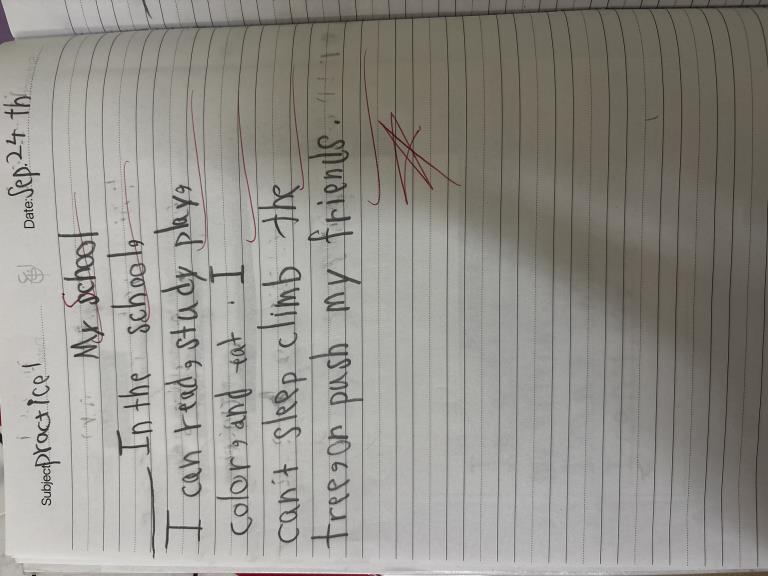 Subject: practice1 Date: Sep. 24 th
My school
In the school,
I can read, study play,
color, and eat. I
can't sleep climb the
tree, or push my friends.